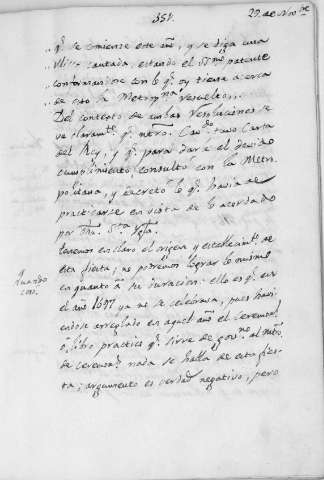 351.
29 de Nov.bre
,, q.e se comience este año, y se diga una
,, cantada, estando el SS.mo patente
,, conformandose con lo q.e oy tiene acerca
,, de esto la Metrop.na resuelto...
Del contexto de estas resoluciones se
ve claram.te q.e ntro. Cav.do tuvo Carta
del Rey, y q.e para darle el devido
cumplimiento consultó con la Metro
politana, y decretó lo q.e havia de
practicarse en vista de lo acordado
por dha. S.ta Ygl.a
tenemos en claro el origen y establecim.to de
esta fiesta; no podremos lograr lo mismo
en quanto a su duracion: ello es q.e en
el año 1697 ya no se celebrava, pues havi
endose arreglado en aquel año el ceremon.l
o libro practico q.e sirve de gov.no al mtro.
de ceremon.s nada se halla de esta fies-
ta; argumento es verdad negativo, pero
quando